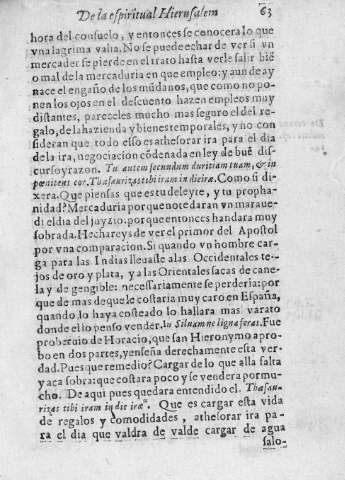 De la espiritual Hierusalem 63
hora del consuelo, y entonces se conocera lo que
vna lagrima valia. No se puede echar de ver si vn
mercader se pierde en el trato hasta verle salir biẽ
o mal de la mercaduria en que empleo: y aun de ay
nace el engaño de los mũdanos, que como no po-
nen los ojos en el descuento hazen empleos muy
distantes, pareceles mucho mas seguro el del re-
galo, de la hazienda y bienes temporales, y no con
sideran que todo esso es athesorar ira para el dia
de la ira, negociacion cõdenada en ley de buẽ dis-
curso y razon. Tu autem secundum duritiam tuam, & in
pœnitens cor, Thesaurizas tibi iram in die iræ. Como si di-
xera. Que piensas que es tu deleyte, y tu propha-
nidad? Mercaduria por que no te daran vn maraue-
di el dia del juyzio: porque entonces handara muy
sobrada. Hechareys de ver el primor del Apostol
por vna comparacion. Si quando vn hombre car-
ga para las Indias lleuasse a las Occidentales te-
jos de oro y plata, y a las Orientales sacas de cane-
la y de gengible: necessariamente se perderia: por
que de mas de que le costaria muy caro en España,
quando lo haya costeado lo hallara mas varato
donde el lo penso vender. In Siluam ne ligna feras. Fue
prouerbio de Horacio, que san Hieronymo apro-
bo en dos partes, y enseña derechamente esta ver-
dad. Pues que remedio? Cargar de lo que alla falta
y aca sobra: que costara poco y se vendera por mu-
cho. De aqui pues quedara entendido el. Thesau-
rizas tibi iram in die iræ. Que es cargar esta vida
de regalos y comodidades, athesorar ira pa-
ra el dia que valdra de valde cargar de agua
salo-